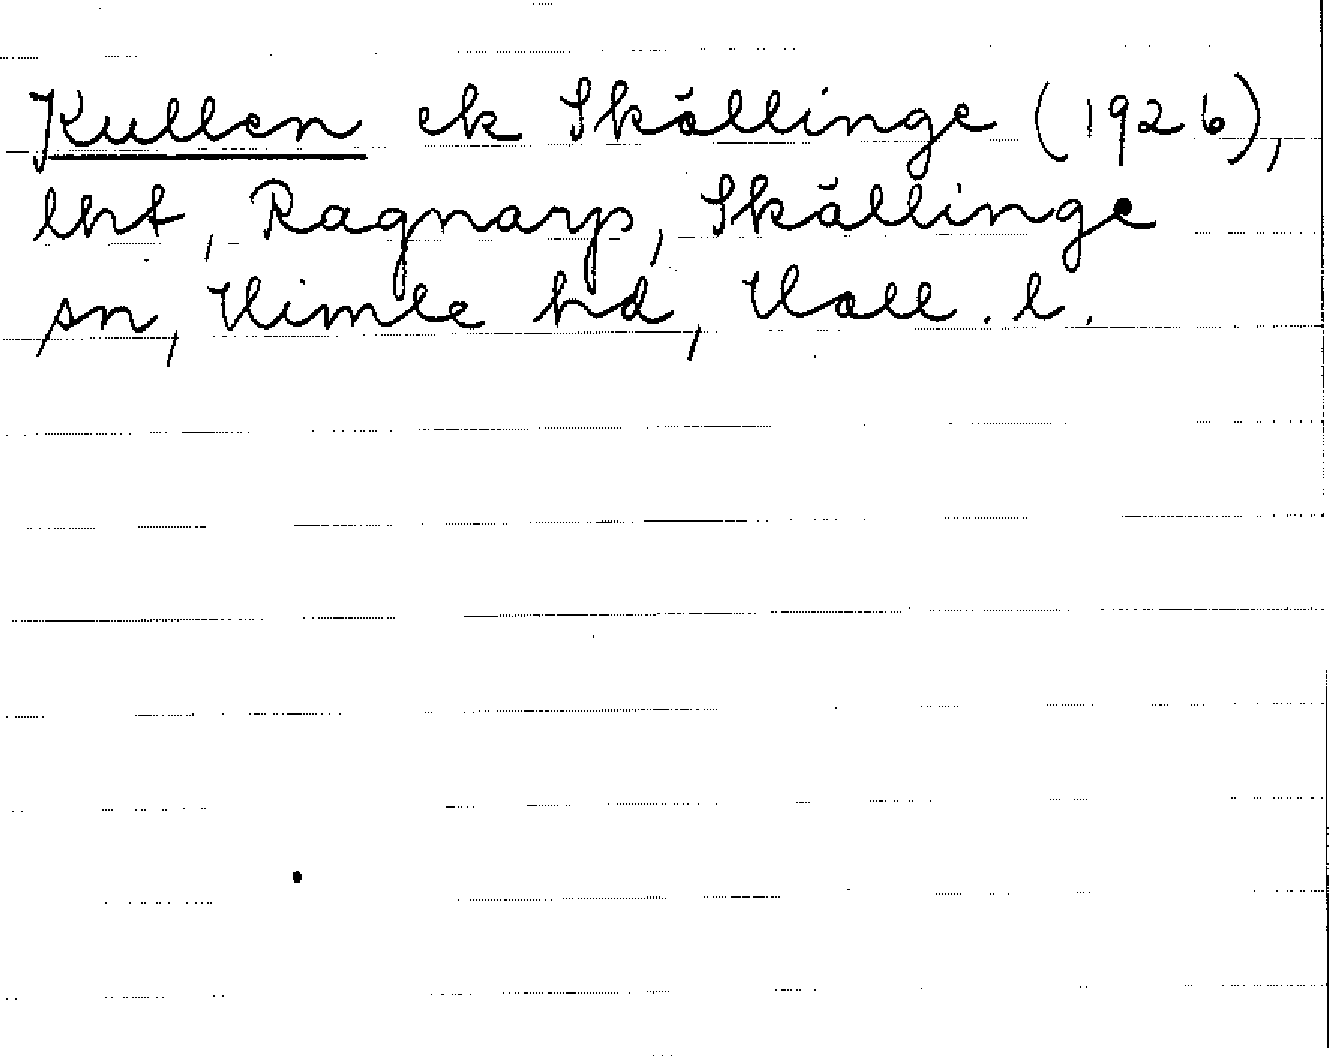 Kullen ek Skällinge (1926),
lht, Ragnarp, Skällinge
sn, Himle hd, Hall. l.